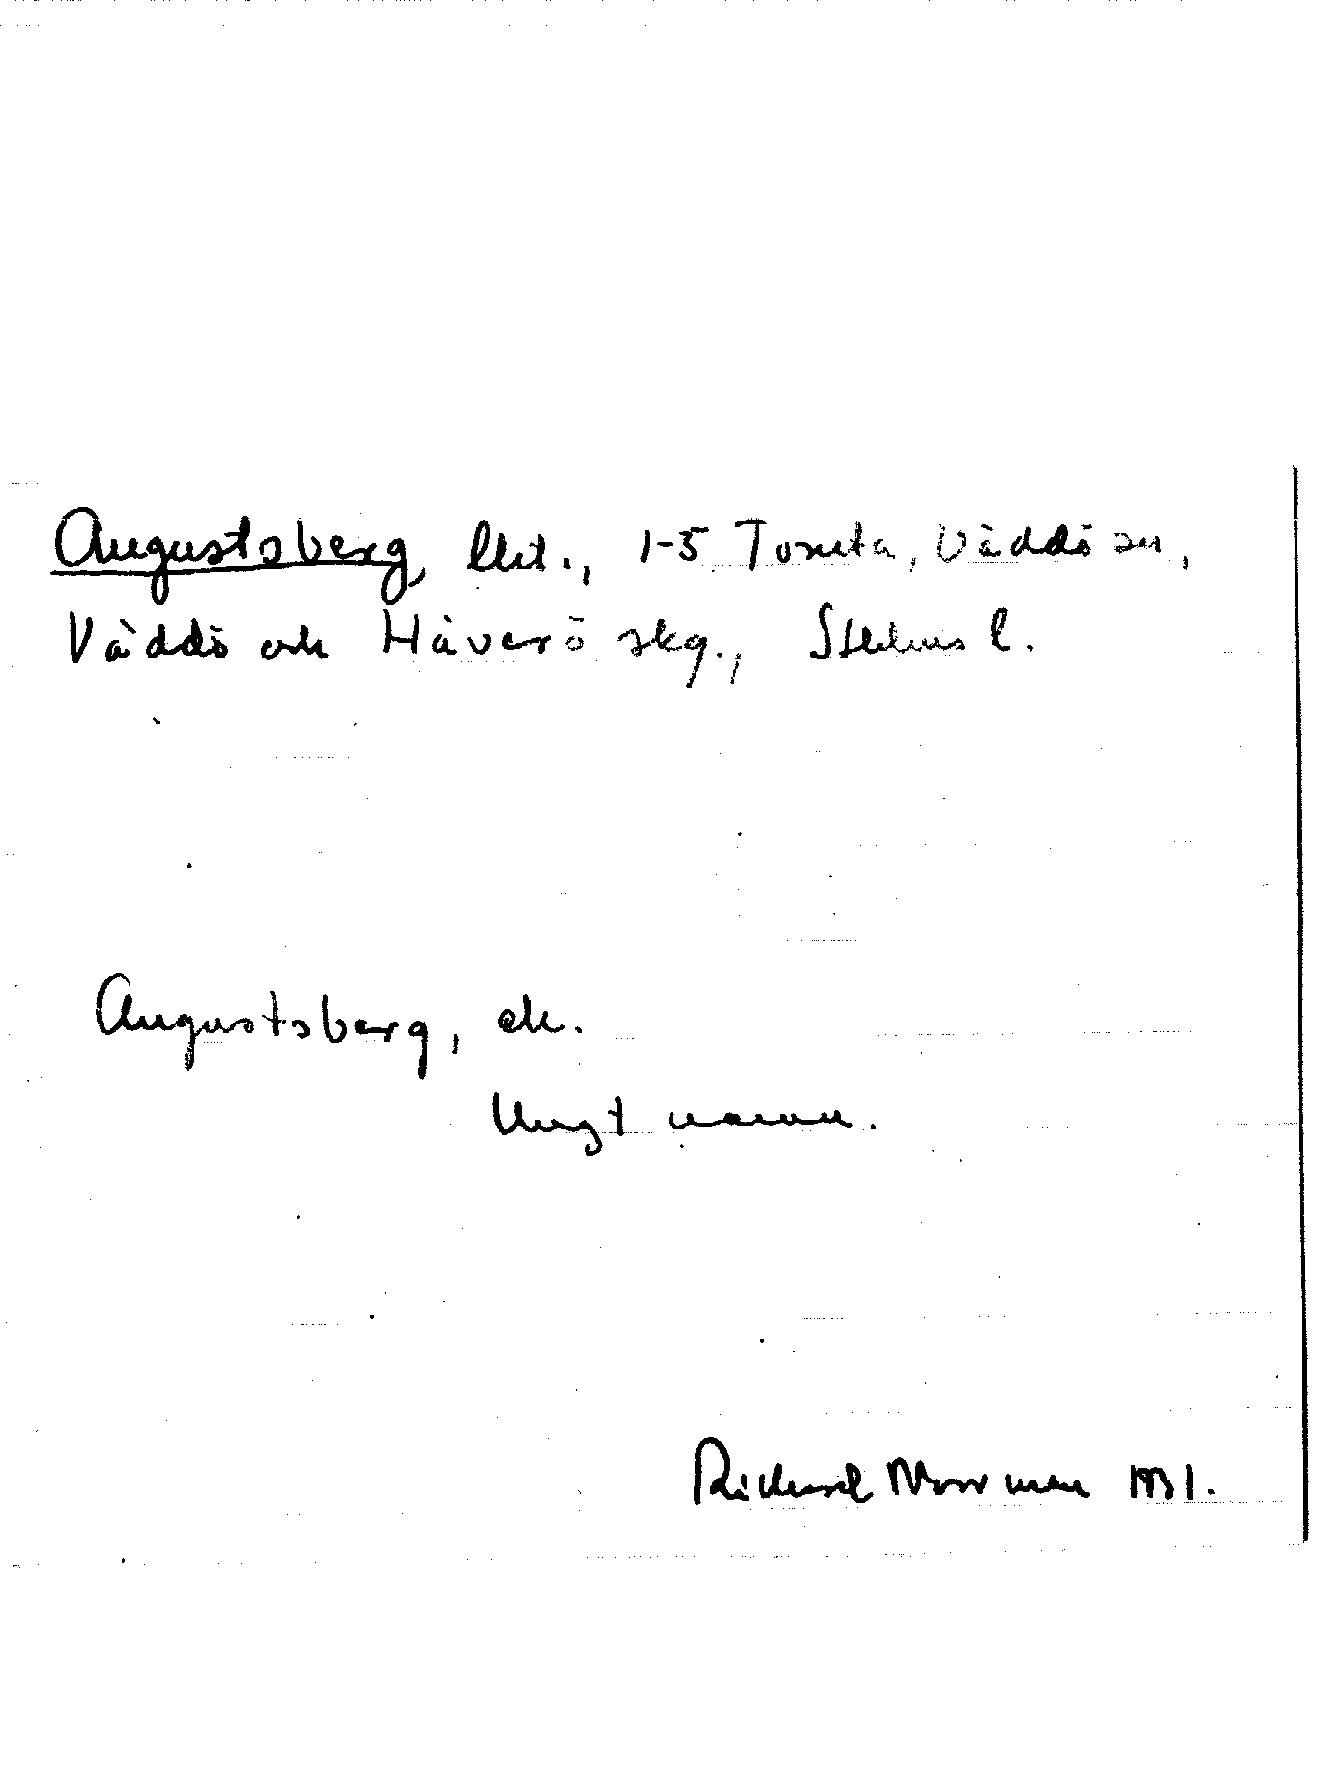 Augustsberg, lht., 1-5 Tomta, Väddö sn,
Väddö och Häverö skg., Sthlms l.
Augustsberg, ek.
Ungt namn.
Richard Norrman 1931.